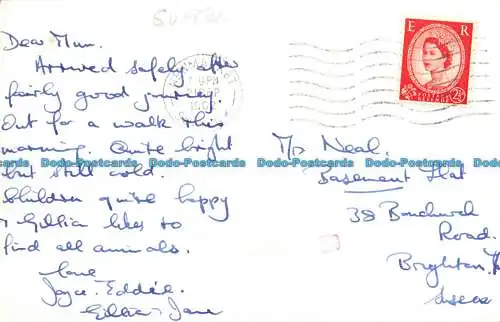 Dear Mum.
Arrived safely after
fairly good journey.
Out for a walk this
morning. Quite bright
but still cold.
Children quite happy
& Gillia likes to
find all animals.
Love
Joyce. Eddie.
Gillia. Jane
E R
2½
Mrs Neal.
Basement Flat
38 Bonchurch
Road.
Brighton, 7
Sussex
Dodo-Postcards Dodo-Postcards Dodo-Postcards Dodo-Postcards Dodo-Postcards Dodo-Postcards